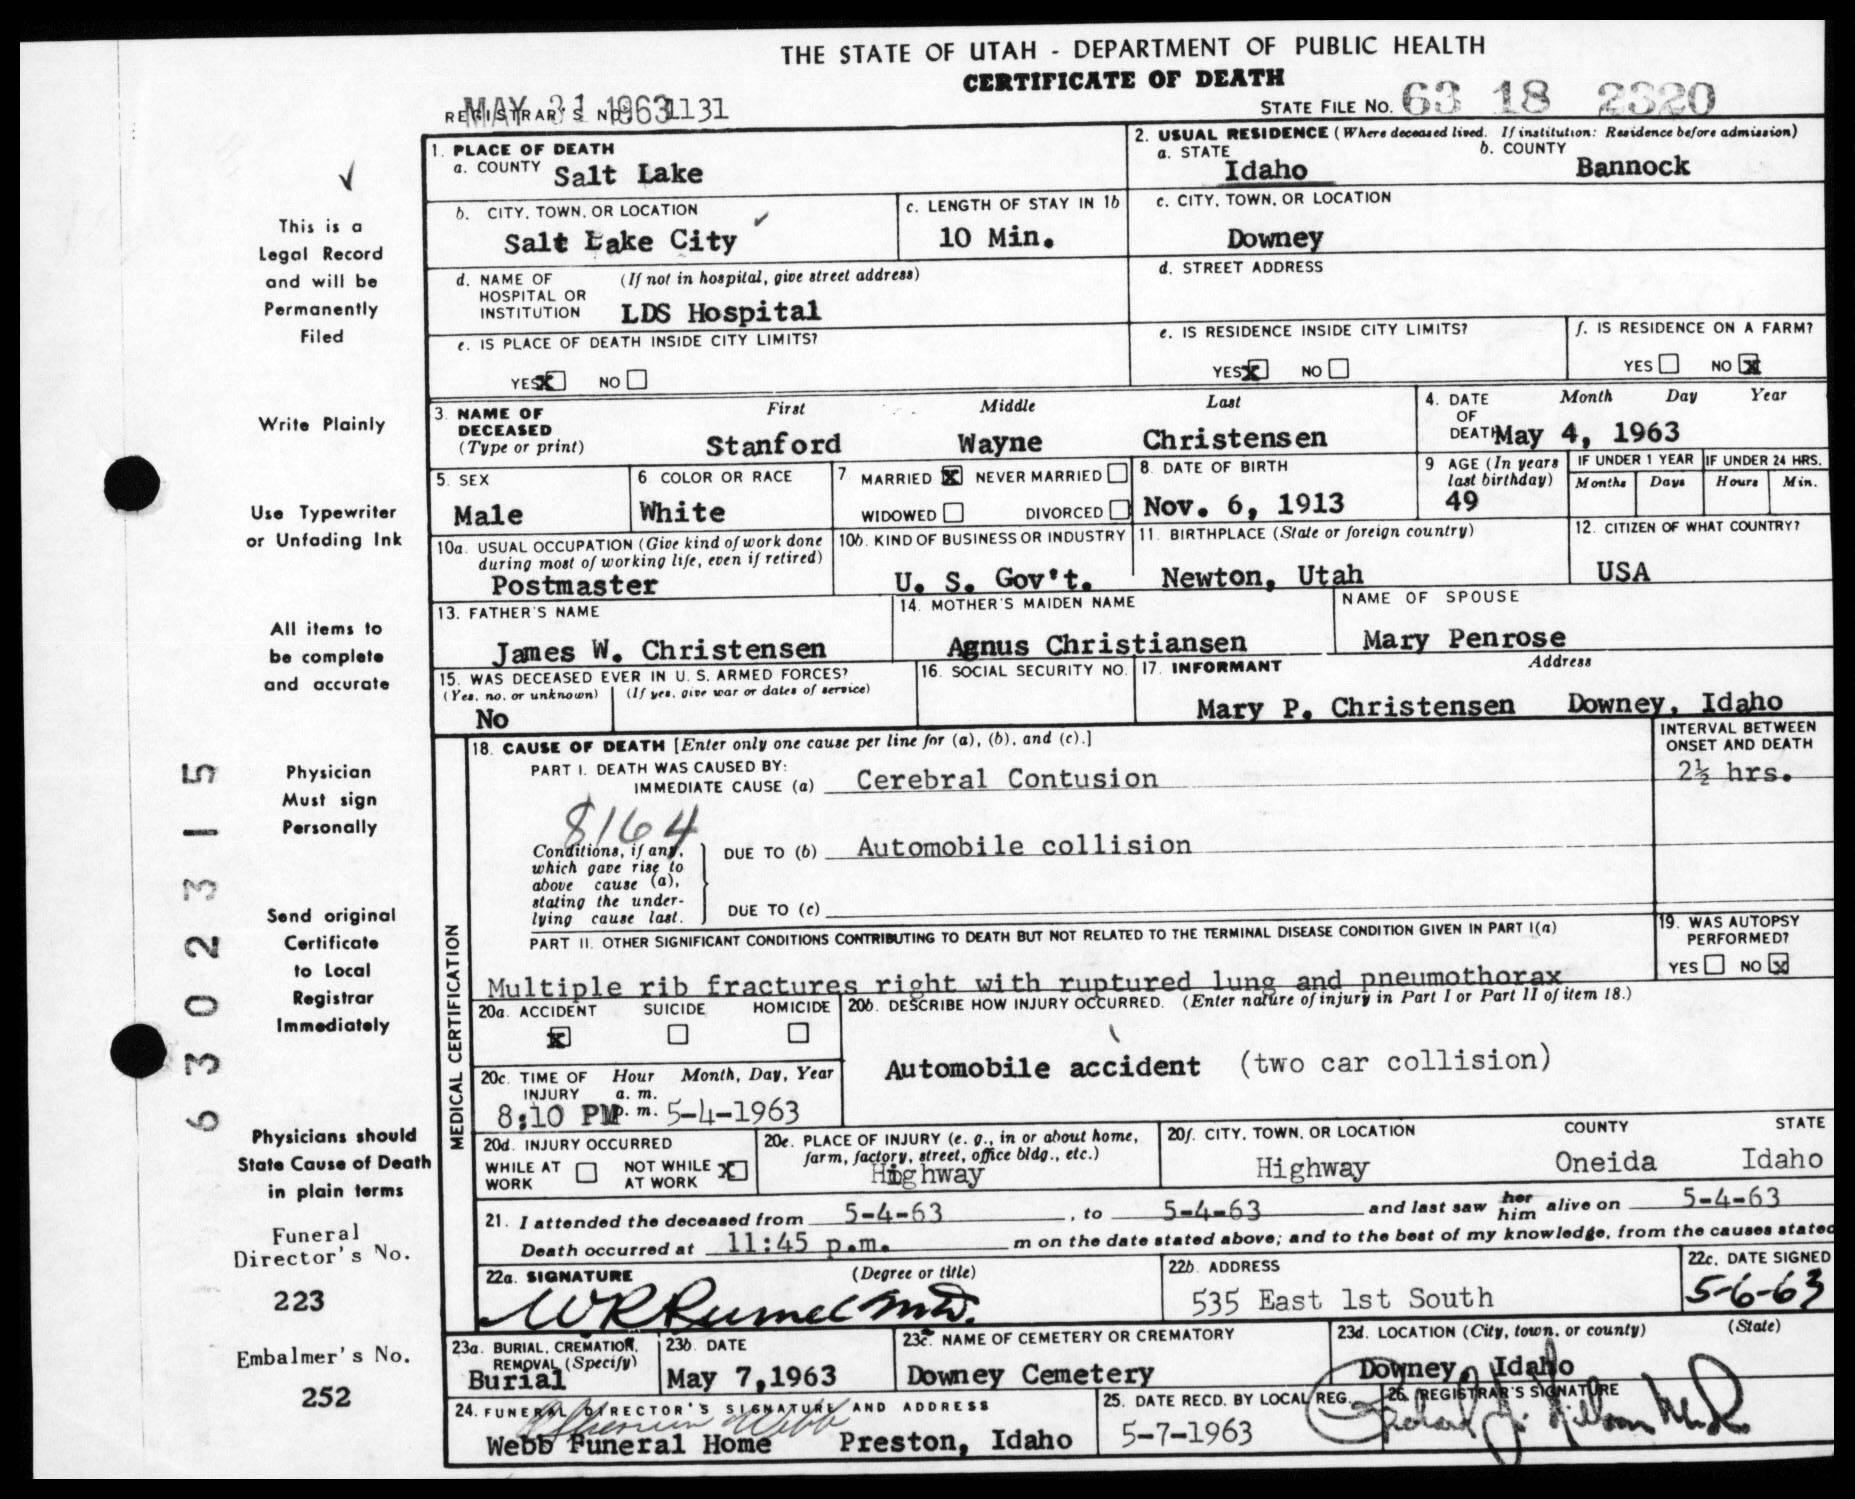 THE STATE OF UTAH - DEPARTMENT OF PUBLIC HEALTH
CERTIFICATE OF DEATH
MAY 31 1963
REGISTRAR'S NO. 1131
STATE FILE NO. 63 18 2320
1. PLACE OF DEATH
a. COUNTY Salt Lake
2. USUAL RESIDENCE (Where deceased lived. If institution: Residence before admission)
a. STATE Idaho b. COUNTY Bannock
b. CITY, TOWN, OR LOCATION Salt Lake City
c. LENGTH OF STAY IN 1b 10 Min.
c. CITY, TOWN, OR LOCATION Downey
d. NAME OF HOSPITAL OR INSTITUTION (If not in hospital, give street address) LDS Hospital
d. STREET ADDRESS
e. IS PLACE OF DEATH INSIDE CITY LIMITS?
YES X NO
e. IS RESIDENCE INSIDE CITY LIMITS?
YES X NO
f. IS RESIDENCE ON A FARM?
YES NO X
3. NAME OF DECEASED (Type or print)
First Middle Last
Stanford Wayne Christensen
4. DATE OF DEATH Month Day Year
May 4, 1963
5. SEX Male
6 COLOR OR RACE White
7 MARRIED X NEVER MARRIED
WIDOWED DIVORCED
8. DATE OF BIRTH Nov. 6, 1913
9 AGE (In years last birthday) 49
IF UNDER 1 YEAR Months Days
IF UNDER 24 HRS. Hours Min.
10a. USUAL OCCUPATION (Give kind of work done during most of working life, even if retired)
Postmaster
10b. KIND OF BUSINESS OR INDUSTRY
U. S. Gov't.
11. BIRTHPLACE (State or foreign country)
Newton, Utah
12. CITIZEN OF WHAT COUNTRY?
USA
13. FATHER'S NAME
James W. Christensen
14. MOTHER'S MAIDEN NAME
Agnus Christiansen
NAME OF SPOUSE
Mary Penrose
15. WAS DECEASED EVER IN U. S. ARMED FORCES?
(Yes, no, or unknown) (If yes, give war or dates of service)
No
16. SOCIAL SECURITY NO.
17. INFORMANT Address
Mary P. Christensen Downey, Idaho
MEDICAL CERTIFICATION
18. CAUSE OF DEATH [Enter only one cause per line for (a), (b), and (c).]
INTERVAL BETWEEN ONSET AND DEATH
PART I. DEATH WAS CAUSED BY:
IMMEDIATE CAUSE (a) Cerebral Contusion
2½ hrs.
8164
Conditions, if any, which gave rise to above cause (a), stating the underlying cause last.
DUE TO (b) Automobile collision
DUE TO (c)
PART II. OTHER SIGNIFICANT CONDITIONS CONTRIBUTING TO DEATH BUT NOT RELATED TO THE TERMINAL DISEASE CONDITION GIVEN IN PART I(a)
Multiple rib fractures right with ruptured lung and pneumothorax
19. WAS AUTOPSY PERFORMED?
YES NO X
20a. ACCIDENT SUICIDE HOMICIDE
X
20b. DESCRIBE HOW INJURY OCCURRED. (Enter nature of injury in Part I or Part II of item 18.)
Automobile accident (two car collision)
20c. TIME OF INJURY Hour Month, Day, Year
a. m.
8:10 PM p. m. 5-4-1963
20d. INJURY OCCURRED
WHILE AT WORK NOT WHILE AT WORK X
20e. PLACE OF INJURY (e. g., in or about home, farm, factory, street, office bldg., etc.)
Highway
20f. CITY, TOWN, OR LOCATION COUNTY STATE
Highway Oneida Idaho
21. I attended the deceased from 5-4-63, to 5-4-63 and last saw her him alive on 5-4-63
Death occurred at 11:45 p.m. m on the date stated above; and to the best of my knowledge, from the causes stated
22a. SIGNATURE (Degree or title)
W R Rumel M.D.
22b. ADDRESS
535 East 1st South
22c. DATE SIGNED
5-6-63
23a. BURIAL, CREMATION, REMOVAL (Specify)
Burial
23b. DATE
May 7, 1963
23c. NAME OF CEMETERY OR CREMATORY
Downey Cemetery
23d. LOCATION (City, town, or county) (State)
Downey, Idaho
24. FUNERAL DIRECTOR'S SIGNATURE AND ADDRESS
Webb
Webb Funeral Home Preston, Idaho
25. DATE RECD. BY LOCAL REG.
5-7-1963
26. REGISTRAR'S SIGNATURE
This is a
Legal Record
and will be
Permanently
Filed
Write Plainly
Use Typewriter
or Unfading Ink
All items to
be complete
and accurate
Physician
Must sign
Personally
Send original
Certificate
to Local
Registrar
Immediately
Physicians should
State Cause of Death
in plain terms
Funeral
Director's No.
223
Embalmer's No.
252
6302315